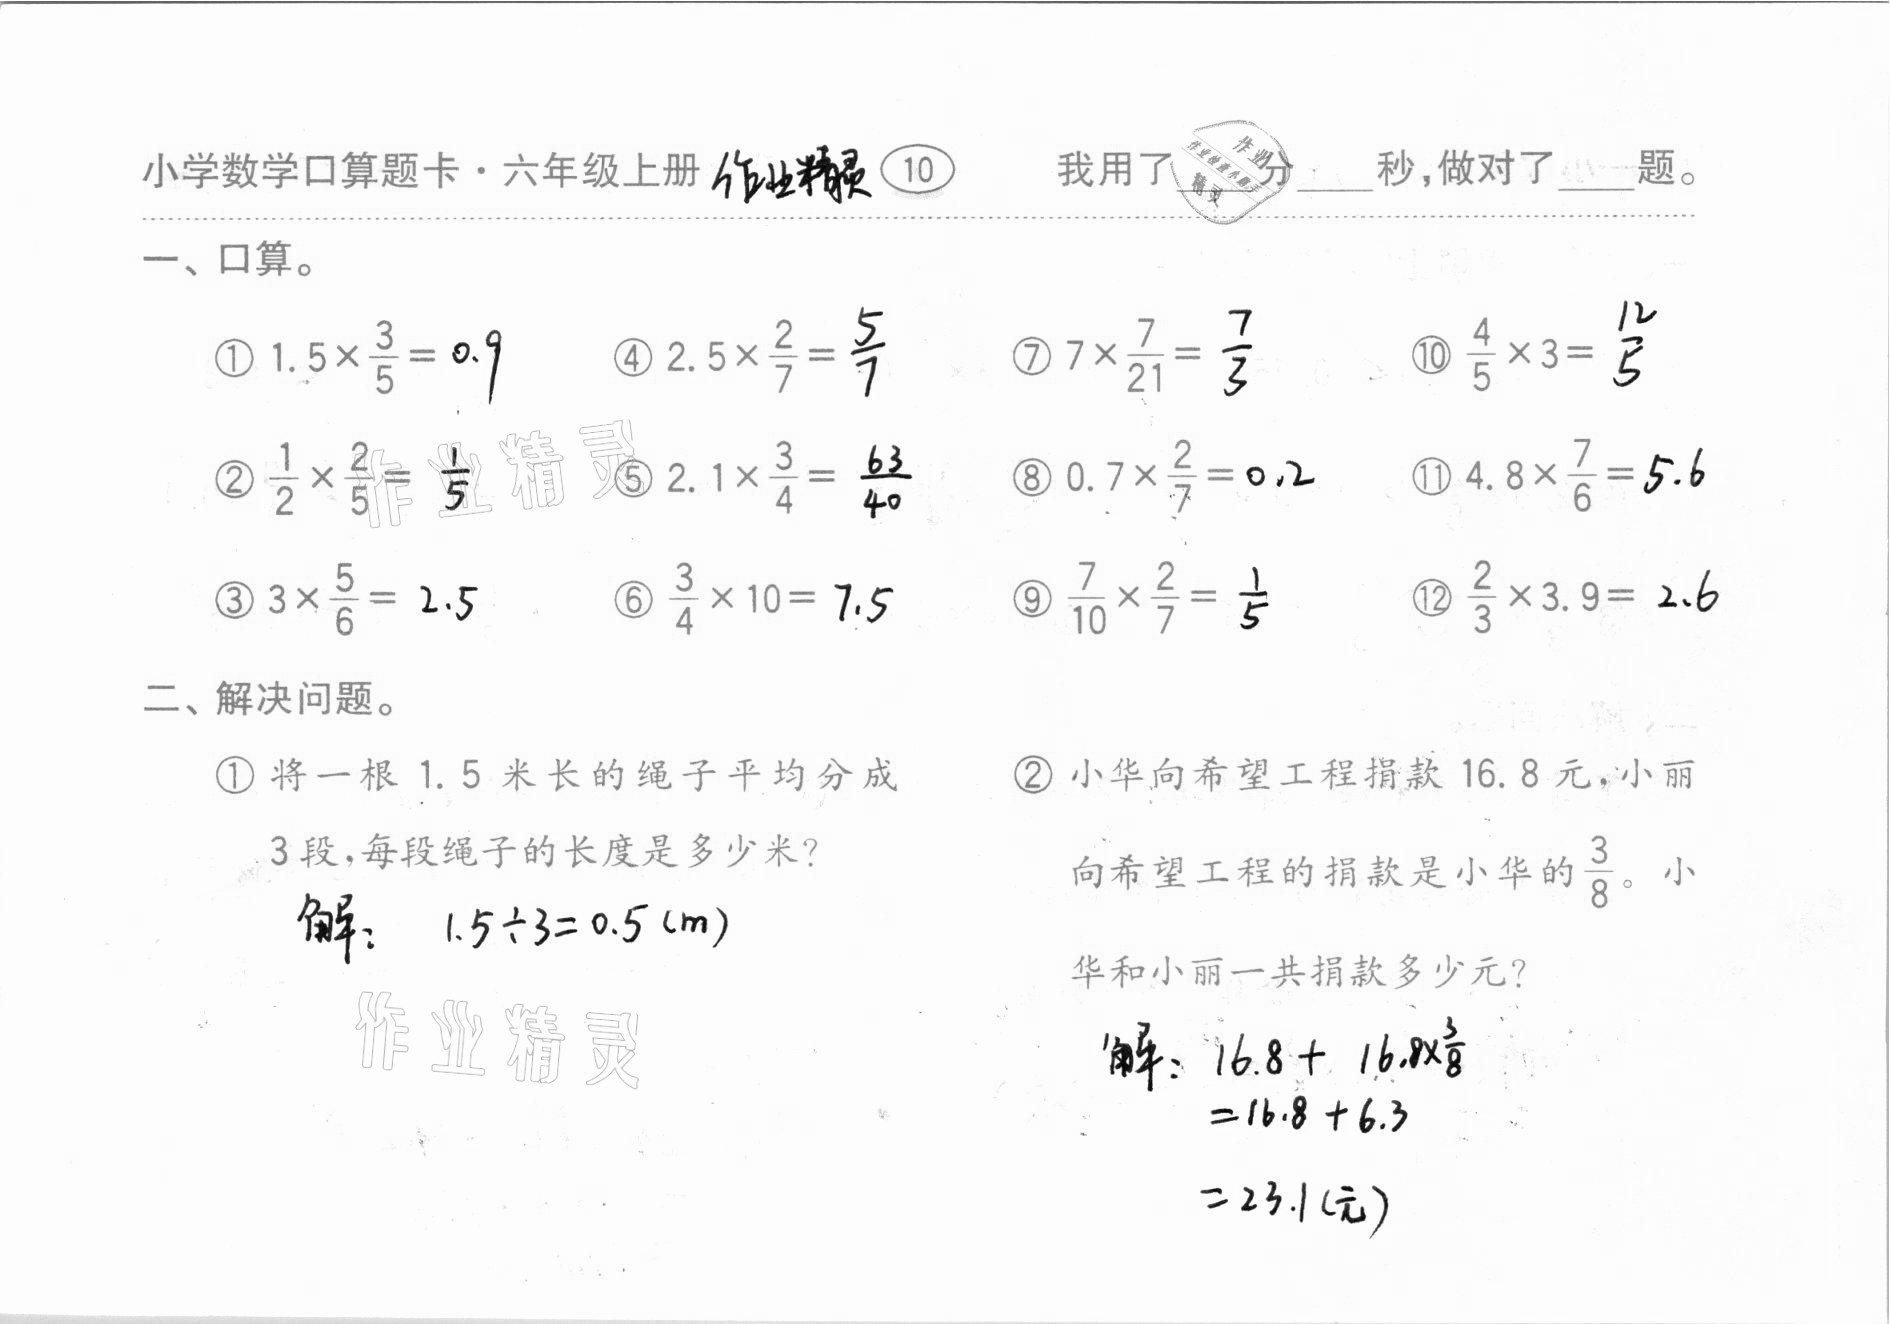 小学数学口算题卡·六年级上册 作业精灵 10 我用了____分____秒,做对了____题。
作业
作业检查小助手
精灵
一、口算。
① 1.5×3/5=0.9 ④ 2.5×2/7=5/7 ⑦ 7×7/21=7/3 ⑩ 4/5×3=12/5
② 1/2×2/5=1/5 ⑤ 2.1×3/4=63/40 ⑧ 0.7×2/7=0.2 ⑪ 4.8×7/6=5.6
作业精灵
③ 3×5/6=2.5 ⑥ 3/4×10=7.5 ⑨ 7/10×2/7=1/5 ⑫ 2/3×3.9=2.6
二、解决问题。
① 将一根 1.5 米长的绳子平均分成
3段,每段绳子的长度是多少米?
解: 1.5÷3=0.5(m)
作业精灵
② 小华向希望工程捐款 16.8 元,小丽
向希望工程的捐款是小华的3/8。小
华和小丽一共捐款多少元?
解: 16.8+16.8×3/8
=16.8+6.3
=23.1(元)